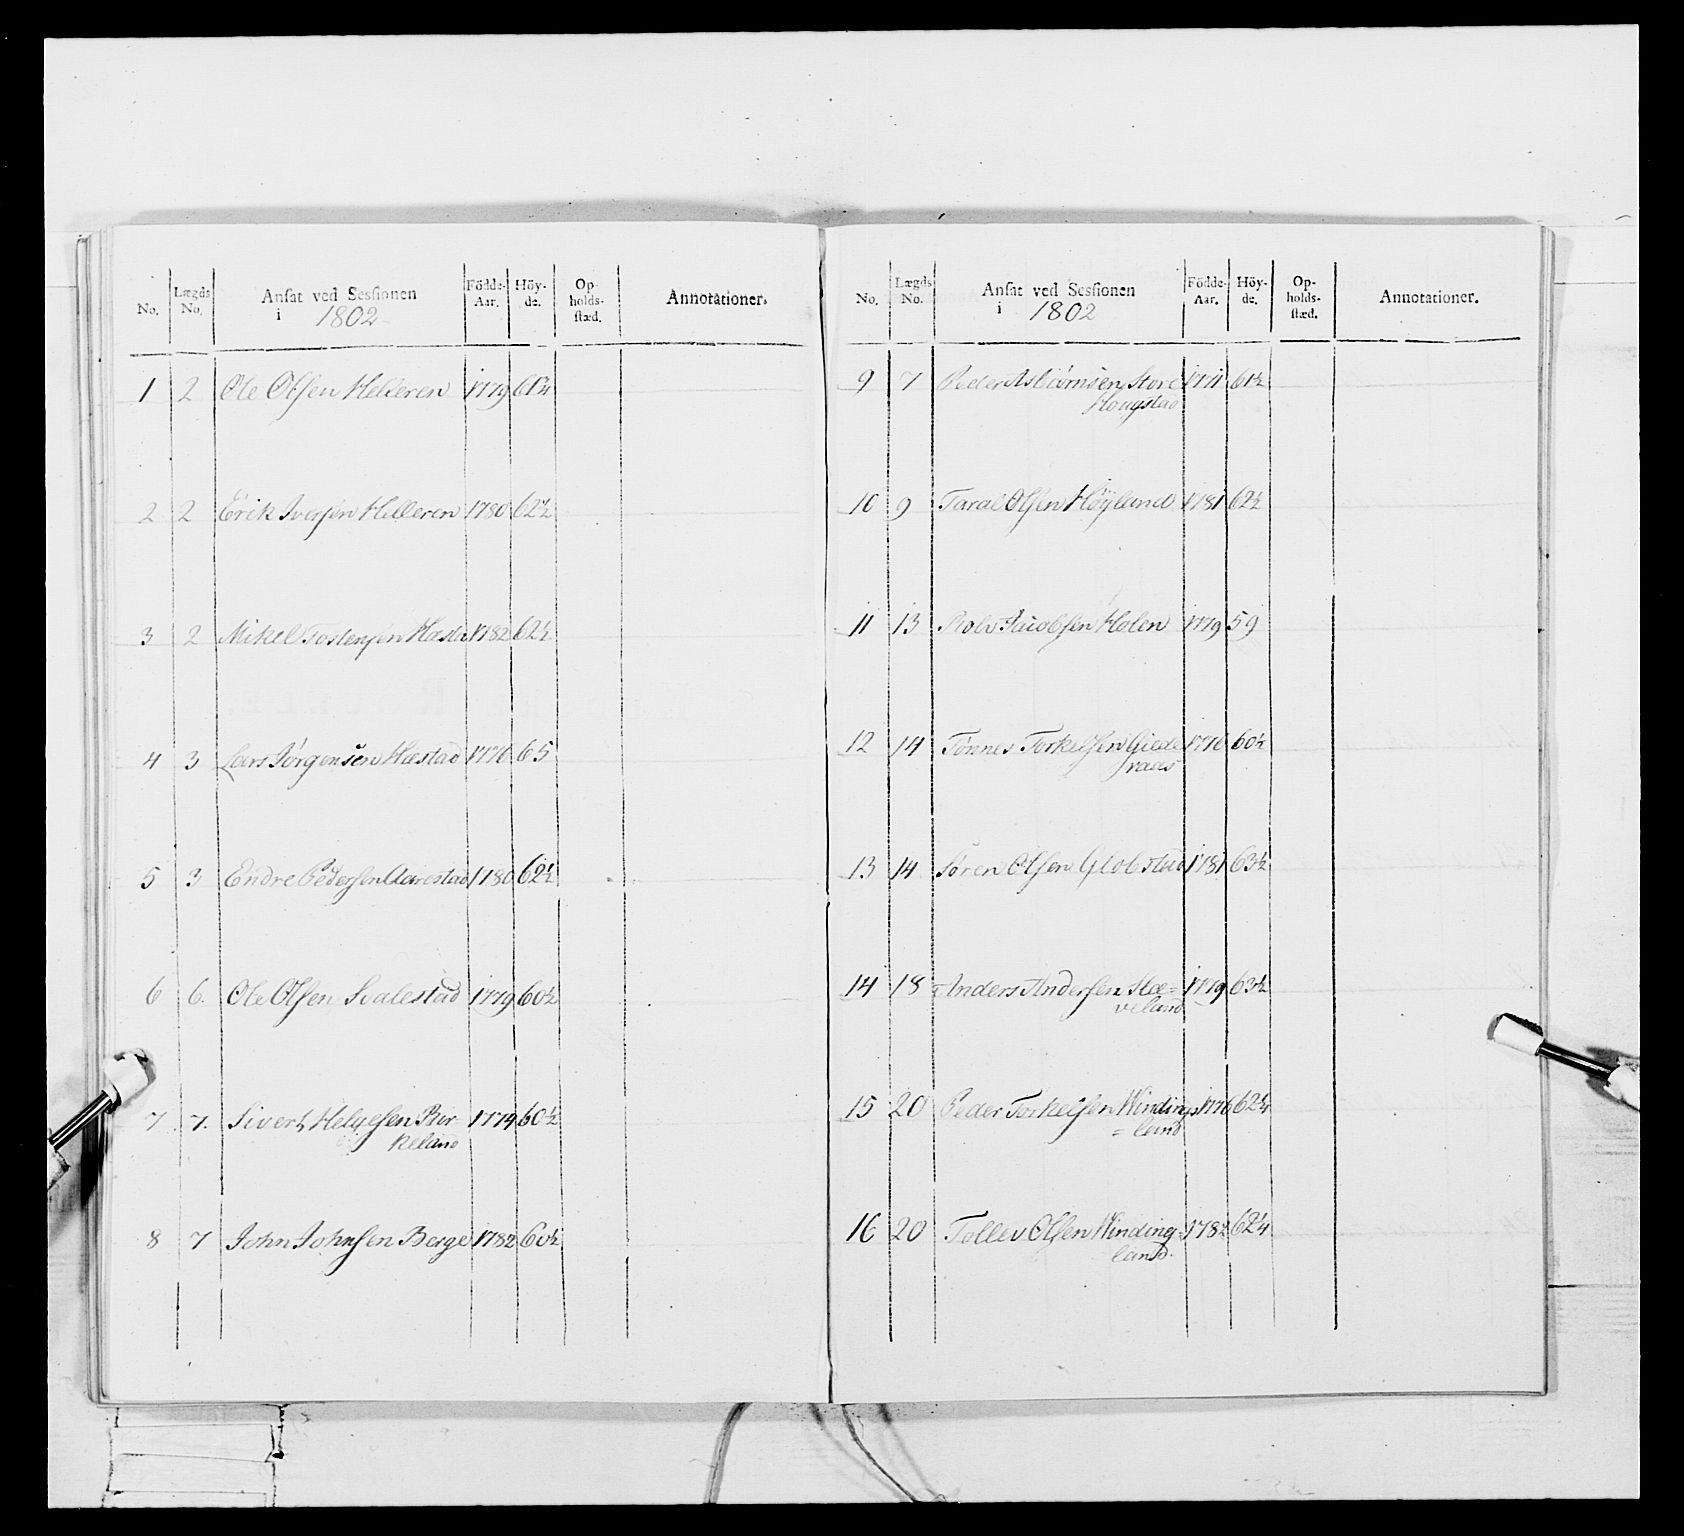 No. Lægds No. Ansat ved Sessionen i 1802 Födde-Aar. Höy-de. Op-holds-stæd. Annotationer.
1 2 Ole Olsen Helleren 1779 61¾
2 2 Erik Iversen Helleren 1780 62½
3 2 Mikel Tostensen Hæsta 1782 62½
4 3 Lars Jørgensen Hæstad 1776 65
5 3 Endre Pedersen Aarestad 1780 62½
6 6. Ole Olsen Svalestad 1779 60½
7 7. Sivert Helgesen Bir
keland 1774 60½
8 7 John Johnsen Berge 1782 60½
No. Lægds No. Ansat ved Sessionen i 1802 Födde-Aar. Höy-de. Op-holds-stæd. Annotationer.
9 7 Peder Asbiörnsen Store 1771 61½
Hougstad
10 9 Taral Olsen Höÿland 1781 62½
11 13 Rolv Jacobsen Holen 1779 59
12 14 Tönnes Torkelsen Giede 1776 60½
raas
13 14 Sören Olsen Globstad 1781 63½
14 18 Anders Andersen Slæ= 1779 63½
veland
15 20 Peder Torkelsen Windings 1776 62¼
=land
16 20 Tollev Olsen Winding 1782 62¼
land.